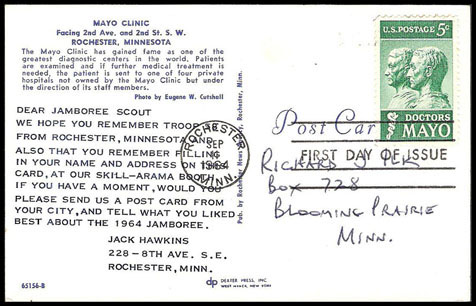 MAYO CLINIC
Facing 2nd Ave, and 2nd St. S. W.
ROCHESTER, MINNESOTA
The Mayo Clinic has gained fame as one of the
greatest diagnostic centers in the world. Patients
are examined and if further medical treatment is
needed, the patient is sent to one of four private
hospitals not owned by the Mayo Clinic but under
the direction of its staff members.
Photo by Eugene W. Cutshall
DEAR JAMBOREE SCOUT
WE HOPE YOU REMEMBER TROOP
FROM ROCHESTER, MINNESOTA AND
ALSO THAT YOU REMEMBER FILLING
IN YOUR NAME AND ADDRESS ON THIS
CARD, AT OUR SKILL-ARAMA BOOTH.
IF YOU HAVE A MOMENT, WOULD YOU
PLEASE SEND US A POST CARD FROM
YOUR CITY, AND TELL WHAT YOU LIKED
BEST ABOUT THE 1964 JAMBOREE.
JACK HAWKINS
228-8TH AVE. S.E.
ROCHESTER, MINN.
65156-B
Pub. by Rochester News Rochester, Minn.
dp DEXTER PRESS, INC.
WEST NYACK, NEW YORK
U.S. POSTAGE 5¢
DOCTORS
MAYO
ROCHESTER
SEP
1964
MINN.
Post Car
FIRST DAY OF ISSUE
RICHARD
BOX 728
BLOOMING PRAIRIE
MINN.